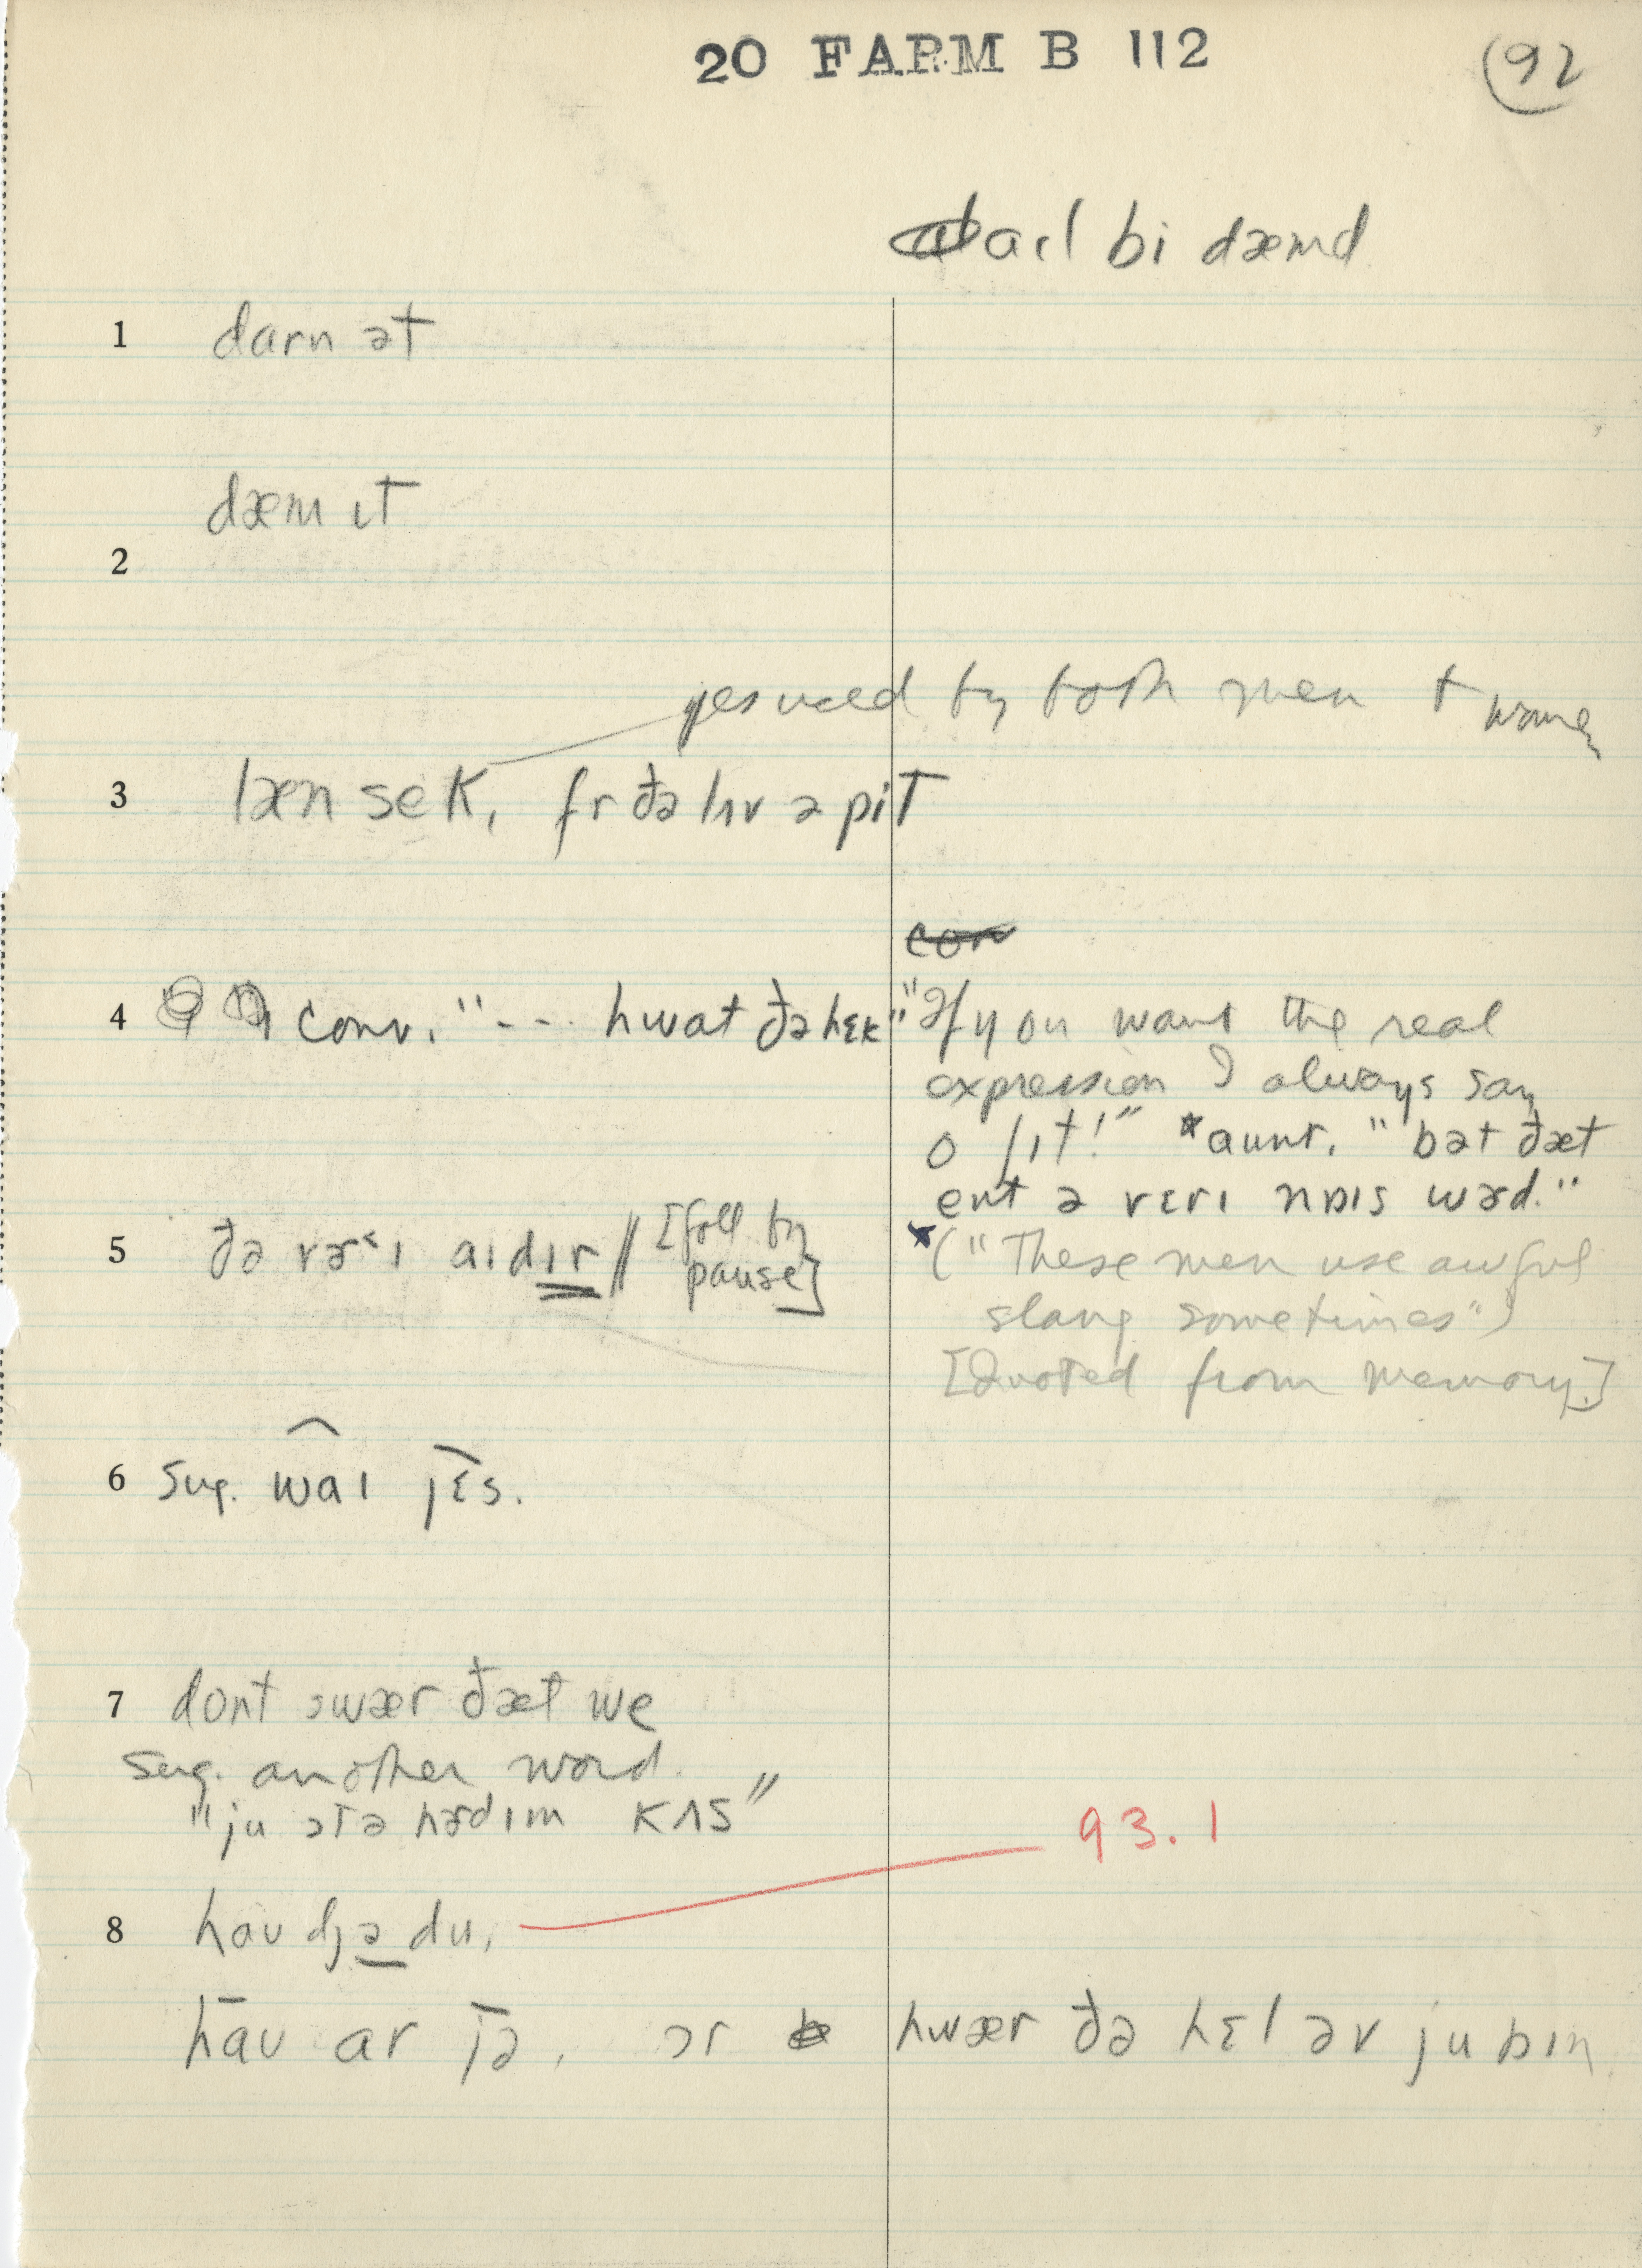 20 FARM B 112
92
aɪl bi dæmd
1 darn ət
dæm ɪt
2
yes used by both men + women
3 læn sek, fr ðə lʌv ə pit
con
4 conv. "--- hwat ðə hɛk" "If you want the real
expression I always say
o ʃɪt!" *aunt. "bət ðæt
ent ə vɛrɪ nɒɪs wɚd."
5 ðə vɚ˂ɪ aɪdɪr // [foll by
pause]
*("These men use awful
slang sometimes")
[Quoted from memory.]
6 sug. waɪ jɛs.
7 dont swær ðæt we
sug. another word.
"ju ɔtə hɚdɪm kʌs"
93.1
8 haʊ dʒə du,
haʊ ar jə, ɔr hwær ðə hɛl əv ju bɪn.